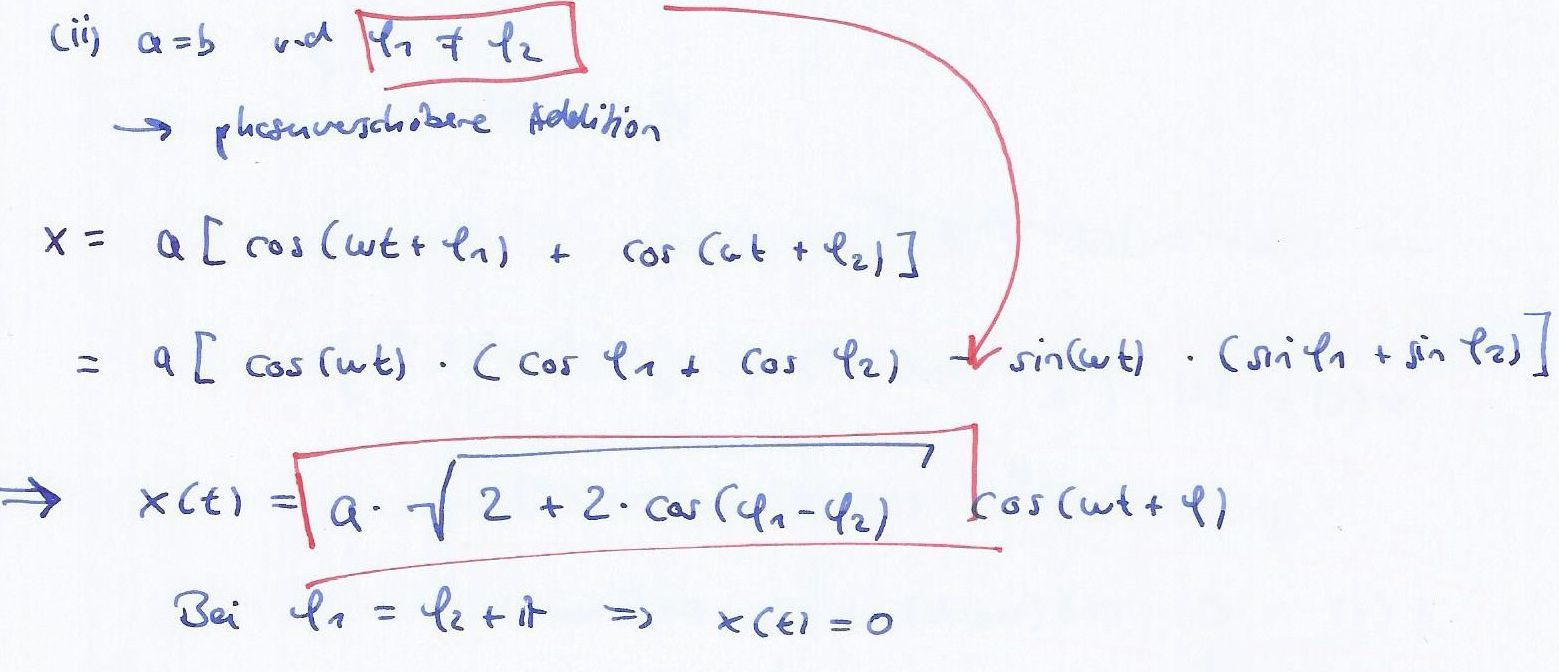 (ii) a=b und φ₁ ≠ φ₂
→ phasenverschobene Addition
x = a [ cos (ωt + φ₁) + cos (ωt + φ₂) ]
= a [ cos (ωt) · ( cos φ₁ + cos φ₂ ) - sin(ωt) · ( sin φ₁ + sin φ₂ ) ]
⇒ x(t) = a · √(2 + 2 · cos (φ₁ - φ₂)) cos (ωt + φ)
Bei φ₁ = φ₂ + π ⇒ x(t) = 0